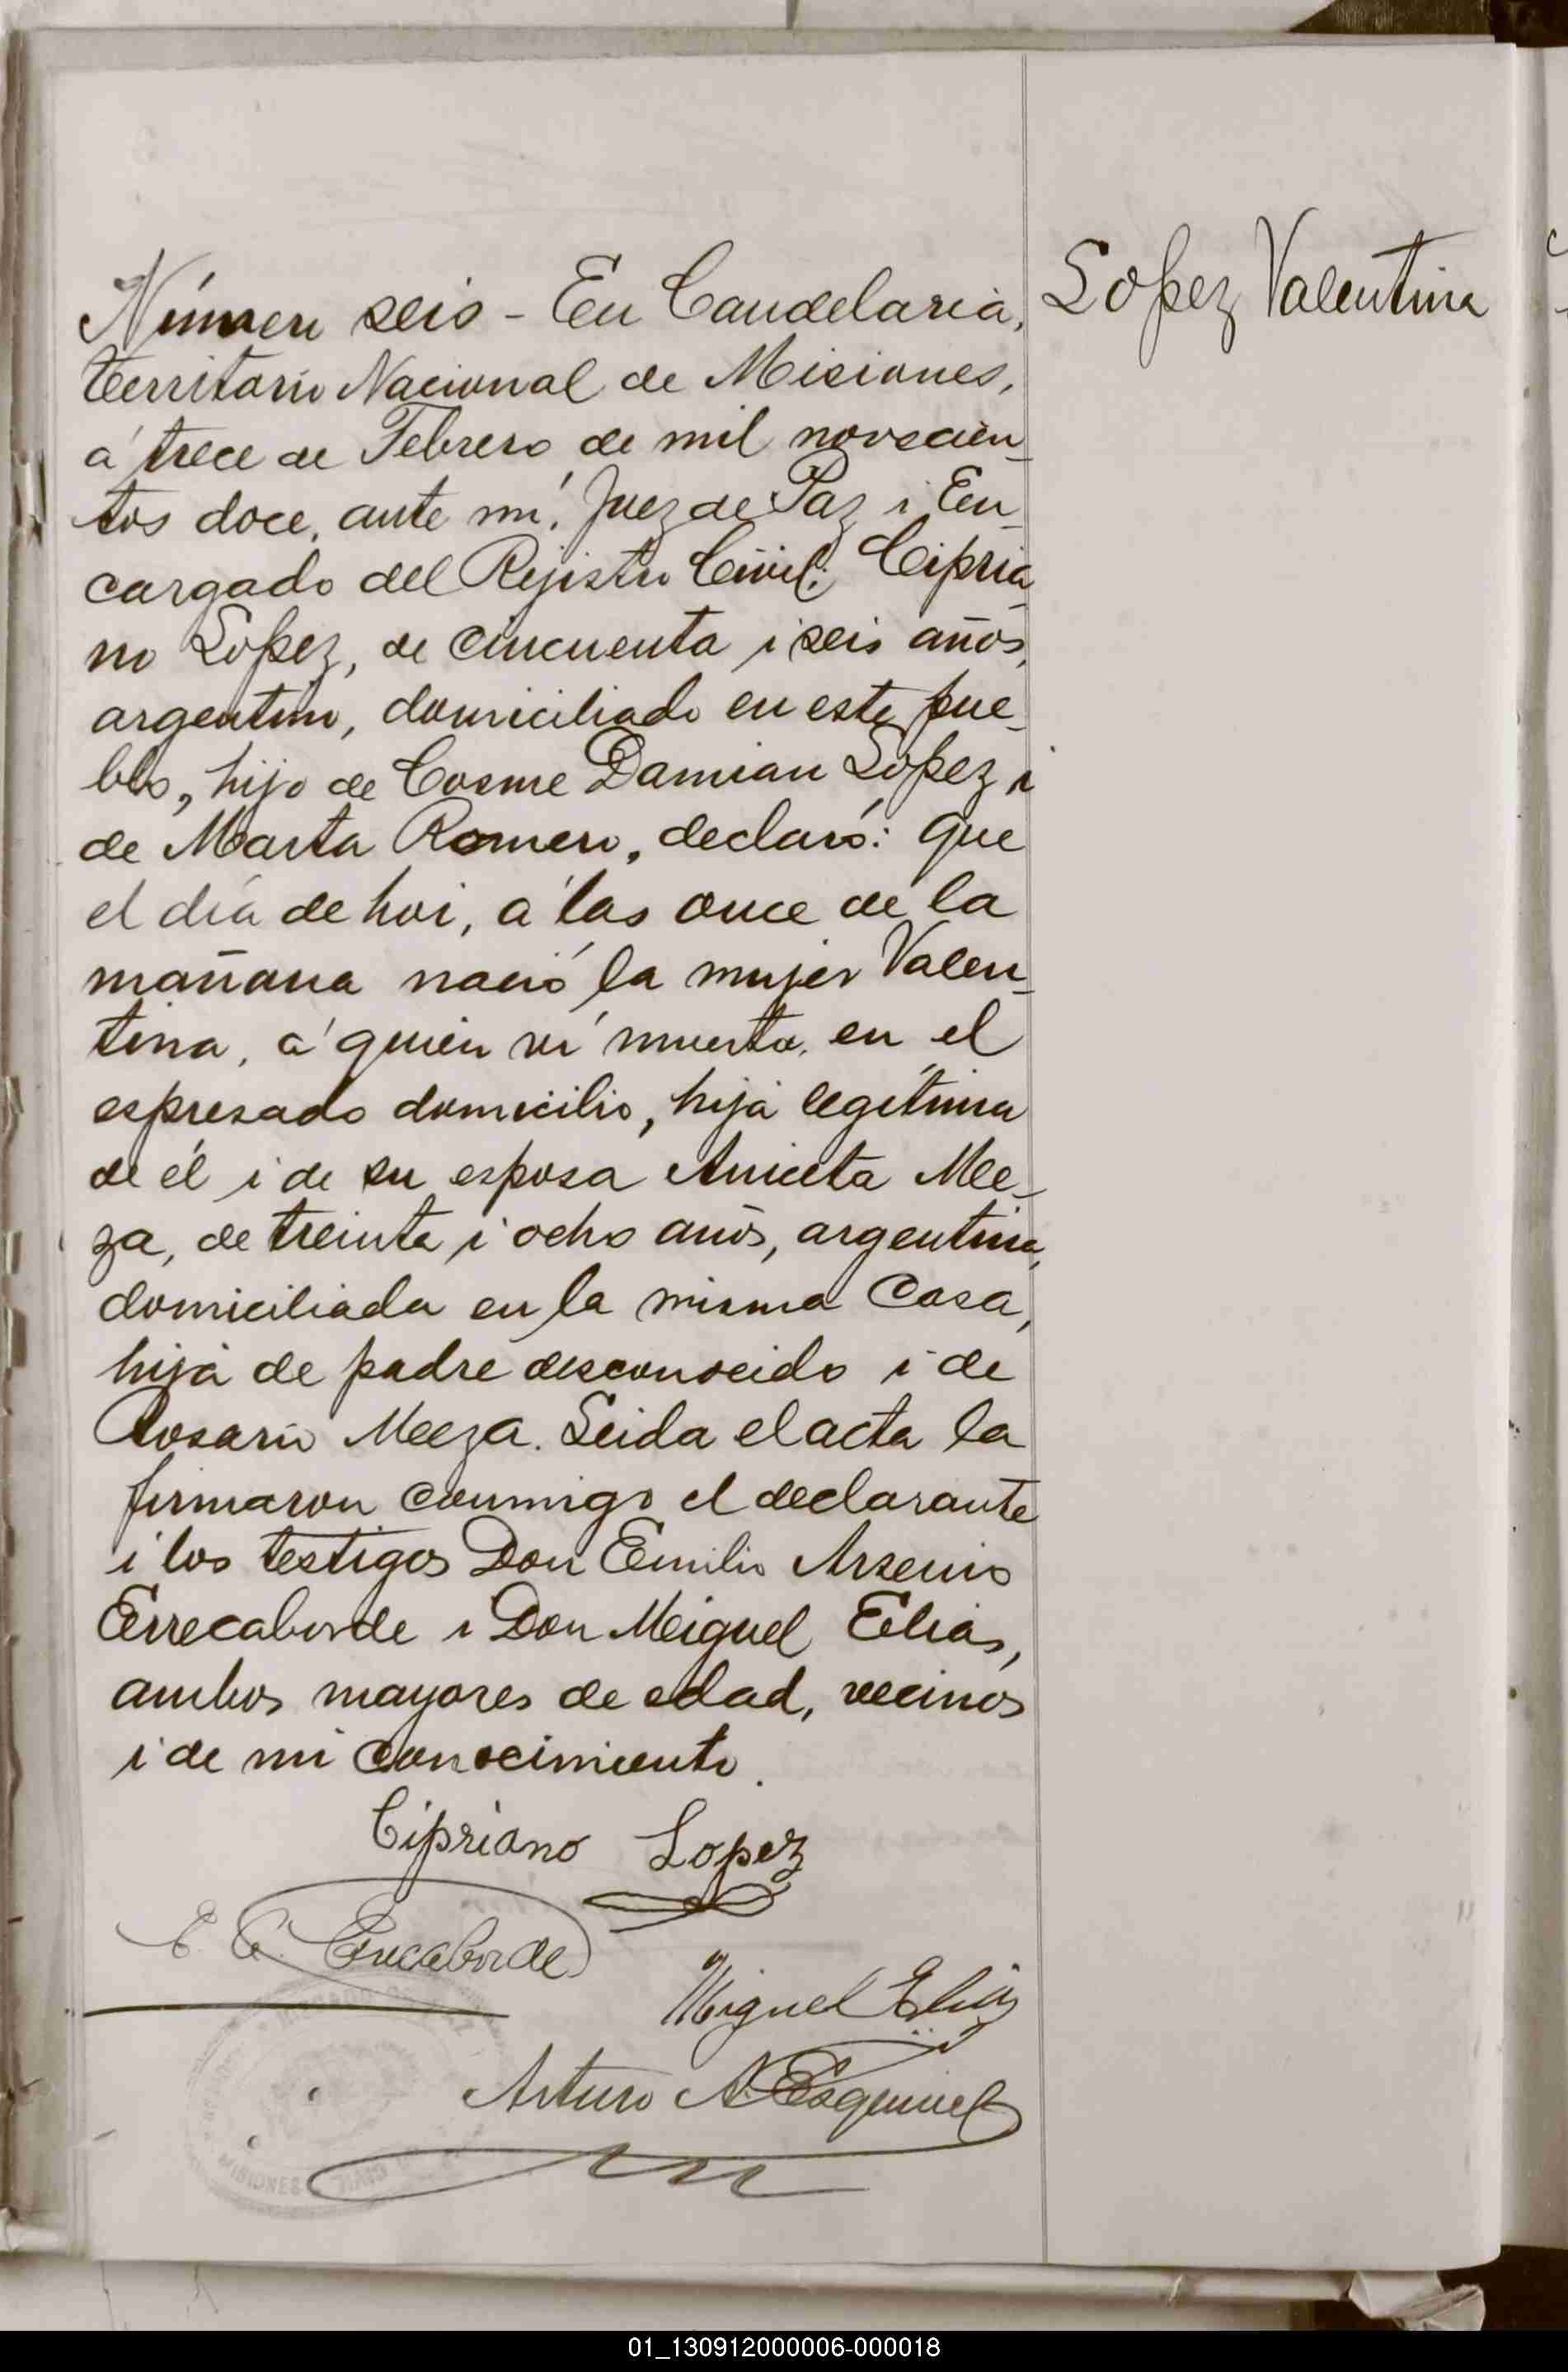 Lopez Valentina
Número seis - En Candelaria,
territorio Nacional de Misiones,
á trece de Febrero de mil novecien_
tos doce, ante mí, Juez de Paz i En_
cargado del Rejistro Civil; Cipria_
no Lopez, de cincuenta i seis años,
argentino, domiciliado en este pue_
blo, hijo de Cosme Damian Lopez i
de Marta Romero, declaró: que
el día de hoi, á las once de la
mañana nació la mujer Valen_
tina, á quien ví muerta, en el
espresado domicilio, hija legítima
de él i de su esposa Aniceta Me_
za, de treinta i ocho años, argentina,
domiciliada en la misma casa,
hija de padre desconocido i de
Rosario Meza. Leida el acta la
firmaron conmigo el declarante
i los testigos Don Emilio Arsenio
Errecaborde i Don Miguel Elias,
ambos mayores de edad, vecinos
i de mi conocimiento.
Cipriano Lopez
E. A. Errecaborde
Miguel Elias
Arturo N. Esquivel
MISIONES
CIVIL
01_130912000006-000018